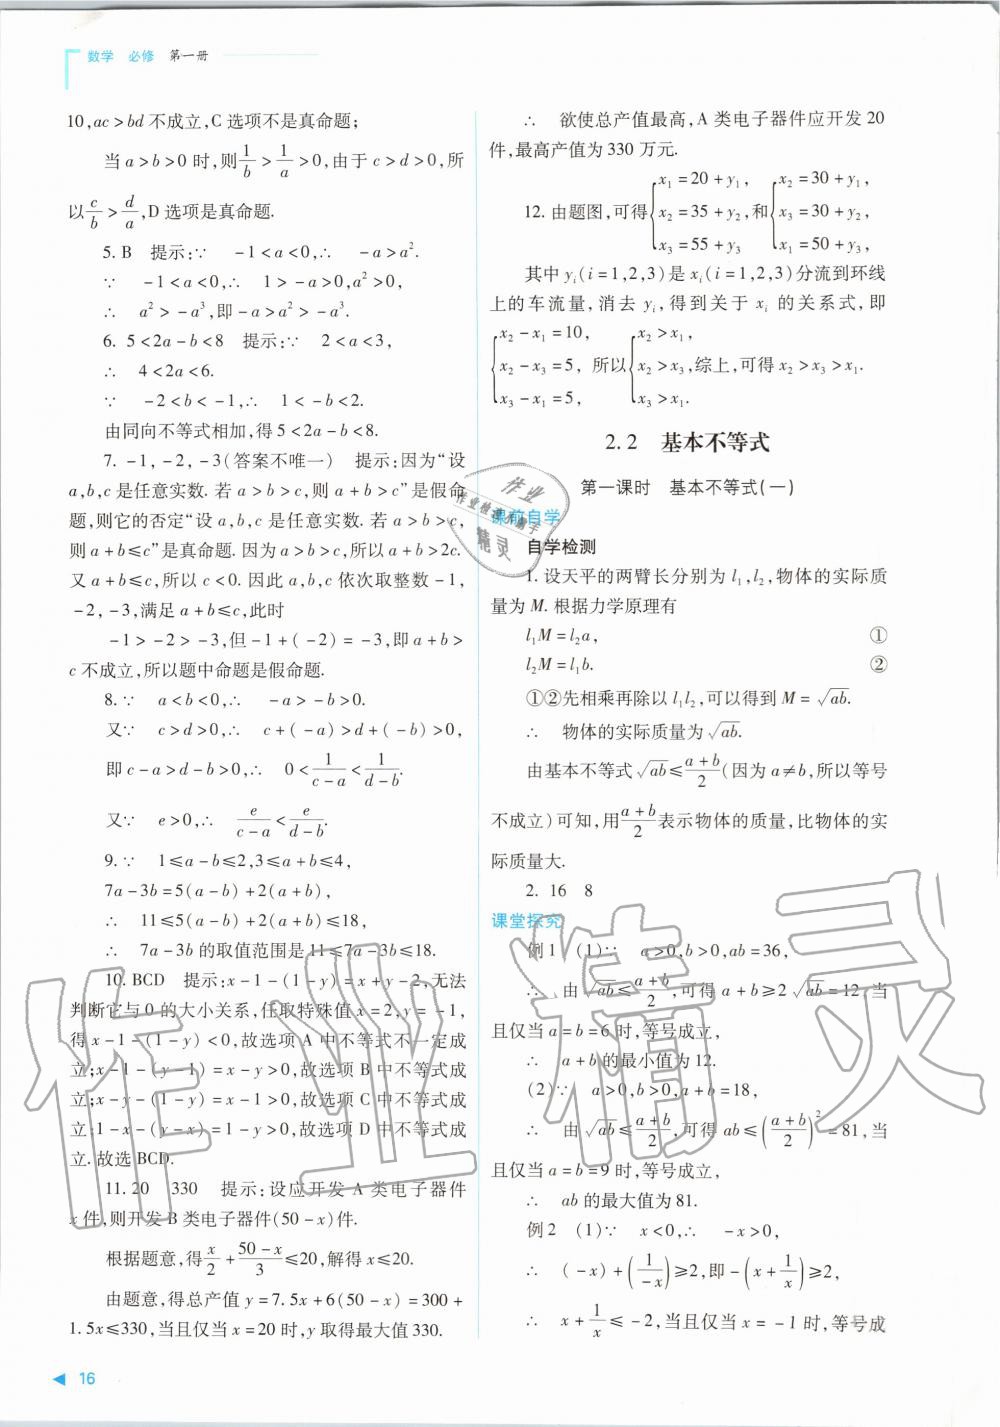 数学 必修 第一册
10,ac>bd 不成立,C 选项不是真命题;
当 a>b>0 时,则1/b>1/a>0,由于 c>d>0,所
以c/b>d/a,D 选项是真命题.
5. B 提示:∵ -1<a<0,∴ -a>a².
∵ -1<a<0,∴ 1>-a>0,a²>0,
∴ a²>-a³,即-a>a²>-a³.
6. 5<2a-b<8 提示:∵ 2<a<3,
∴ 4<2a<6.
∵ -2<b<-1,∴ 1<-b<2.
由同向不等式相加,得 5<2a-b<8.
7. -1,-2,-3(答案不唯一) 提示:因为“设
a,b,c 是任意实数. 若 a>b>c,则 a+b>c”是假命
题,则它的否定“设 a,b,c 是任意实数. 若 a>b>c,
则 a+b≤c”是真命题. 因为 a>b>c,所以 a+b>2c.
又 a+b≤c,所以 c<0. 因此 a,b,c 依次取整数-1,
-2,-3,满足 a+b≤c,此时
-1>-2>-3,但-1+(-2)=-3,即 a+b>
c 不成立,所以题中命题是假命题.
8. ∵ a<b<0,∴ -a>-b>0.
又∵ c>d>0,∴ c+(-a)>d+(-b)>0,
即 c-a>d-b>0,∴ 0<1/(c-a)<1/(d-b).
又∵ e>0,∴ e/(c-a)<e/(d-b).
9. ∵ 1≤a-b≤2,3≤a+b≤4,
7a-3b=5(a-b)+2(a+b),
∴ 11≤5(a-b)+2(a+b)≤18,
∴ 7a-3b 的取值范围是 11≤7a-3b≤18.
10. BCD 提示:x-1-(1-y)=x+y-2,无法
判断它与 0 的大小关系,任取特殊值 x=2,y=-1,
得 x-1-(1-y)<0,故选项 A 中不等式不一定成
立;x-1-(y-1)=x-y>0,故选项 B 中不等式成
立;x-y-(1-y)=x-1>0,故选项 C 中不等式成
立;1-x-(y-x)=1-y>0,故选项 D 中不等式成
立. 故选 BCD.
11. 20 330 提示:设应开发 A 类电子器件
x 件,则开发 B 类电子器件(50-x)件.
根据题意,得x/2+(50-x)/3≤20,解得 x≤20.
由题意,得总产值 y=7.5x+6(50-x)=300+
1.5x≤330,当且仅当 x=20 时,y 取得最大值 330.
∴ 欲使总产值最高,A 类电子器件应开发 20
件,最高产值为 330 万元.
12. 由题图,可得{x₁=20+y₁, x₂=35+y₂, x₃=55+y₃ 和{x₂=30+y₁, x₃=30+y₂, x₁=50+y₃,
其中 yᵢ(i=1,2,3)是 xᵢ(i=1,2,3)分流到环线
上的车流量,消去 yᵢ,得到关于 xᵢ 的关系式,即
{x₂-x₁=10, x₂-x₃=5, x₃-x₁=5, 所以{x₂>x₁, x₂>x₃, x₃>x₁. 综上,可得 x₂>x₃>x₁.
2.2 基本不等式
第一课时 基本不等式(一)
课前自学
自学检测
1. 设天平的两臂长分别为 l₁,l₂,物体的实际质
量为 M. 根据力学原理有
l₁M=l₂a, ①
l₂M=l₁b. ②
①②先相乘再除以 l₁l₂,可以得到 M=√ab.
∴ 物体的实际质量为√ab.
由基本不等式√ab≤(a+b)/2(因为 a≠b,所以等号
不成立)可知,用(a+b)/2表示物体的质量,比物体的实
际质量大.
2. 16 8
课堂探究
例 1 (1)∵ a>0,b>0,ab=36,
∴ 由√ab≤(a+b)/2,可得 a+b≥2√ab=12,当
且仅当 a=b=6 时,等号成立,
∴ a+b 的最小值为 12.
(2)∵ a>0,b>0,a+b=18,
∴ 由√ab≤(a+b)/2,可得 ab≤((a+b)/2)²=81,当
且仅当 a=b=9 时,等号成立,
∴ ab 的最大值为 81.
例 2 (1)∵ x<0,∴ -x>0,
∴ (-x)+(1/-x)≥2,即-(x+1/x)≥2,
∴ x+1/x≤-2,当且仅当 x=-1 时,等号成
16
作业
作业检查小助手
精灵
作业精灵